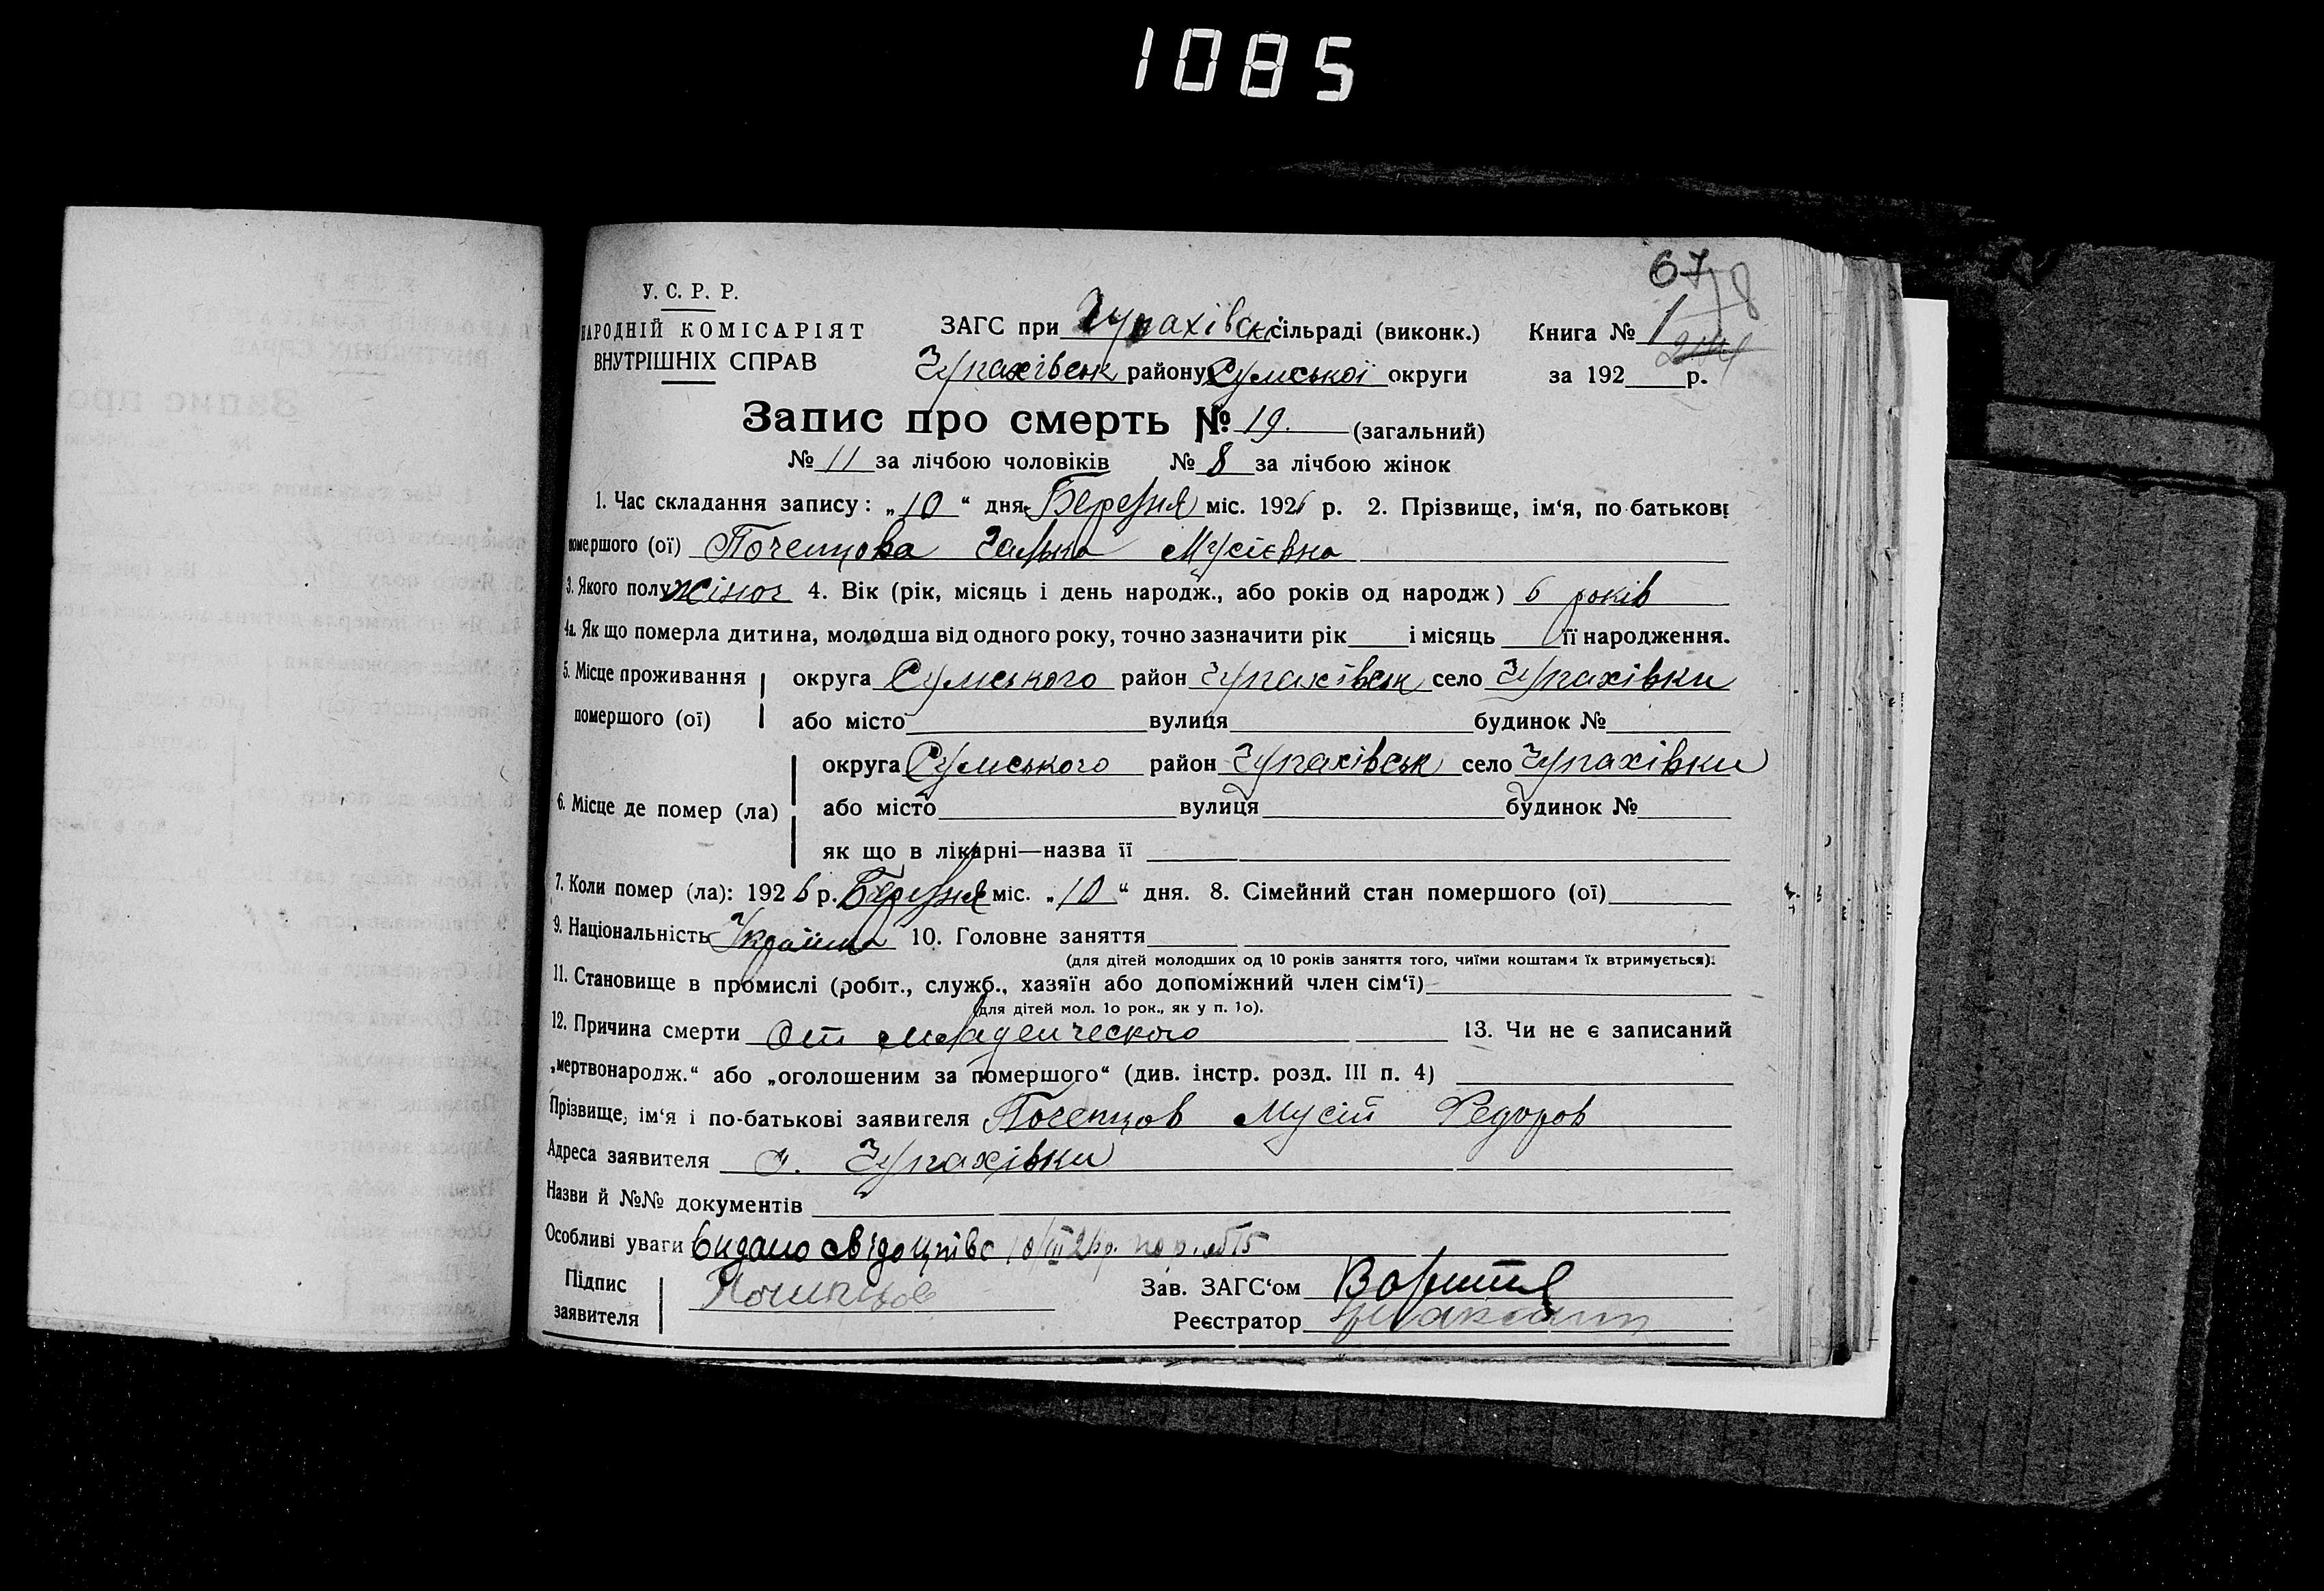 1085
67
78
У. С. Р. Р.
НАРОДНІЙ КОМІСАРІЯТ
ВНУТРІШНІХ СПРАВ
ЗАГС при Чупахівск. сільраді (виконк.) Книга № 1
244
Чупахівськ району Сумської округи за 192 р.
Запис про смерть № 19. (загальний)
№ 11 за лічбою чоловіків № 8 за лічбою жінок
1. Час складання запису: „10“ дня Березня міс. 1926 р. 2. Прізвище, ім‘я, по-батькові
помершого (ої) Почепцова Галька Мусієвна
3. Якого полу жіноч 4. Вік (рік, місяць і день народж., або років од народж) 6 років
4а. Як що померла дитина, молодша від одного року, точно зазначити рік і місяць її народження.
5. Місце проживання округа Сумського район Чупахівськ село Чупахівки
помершого (ої) або місто вулиця будинок №
округа Сумського район Чупахівськ село Чупахівки
6. Місце де помер (ла) або місто вулиця будинок №
як що в лікарні—назва її
7. Коли помер (ла): 1926 р. Березня міс. „10“ дня. 8. Сімейний стан помершого (ої)
9. Національність Українка 10. Головне заняття
(для дітей молодших од 10 років заняття того, чиїми коштами їх втримується).
11. Становище в промислі (робіт., служб., хазяїн або допоміжний член сім‘ї)
(для дітей мол. 1о рок., як у п. 1о).
12. Причина смерти От младенческого 13. Чи не є записаний
„мертвонародж.“ або „оголошеним за помершого“ (див. інстр. розд. III п. 4)
Прізвище, ім‘я і по-батькові заявителя Почепцов Мусій Федоров
Адреса заявителя с. Чупахівки
Назви й №№ документів
Особливі уваги Видано свідоцтво 10/III 26 р. по р. №15
Підпис Почепцов Зав. ЗАГС‘ом
заявителя Реєстратор